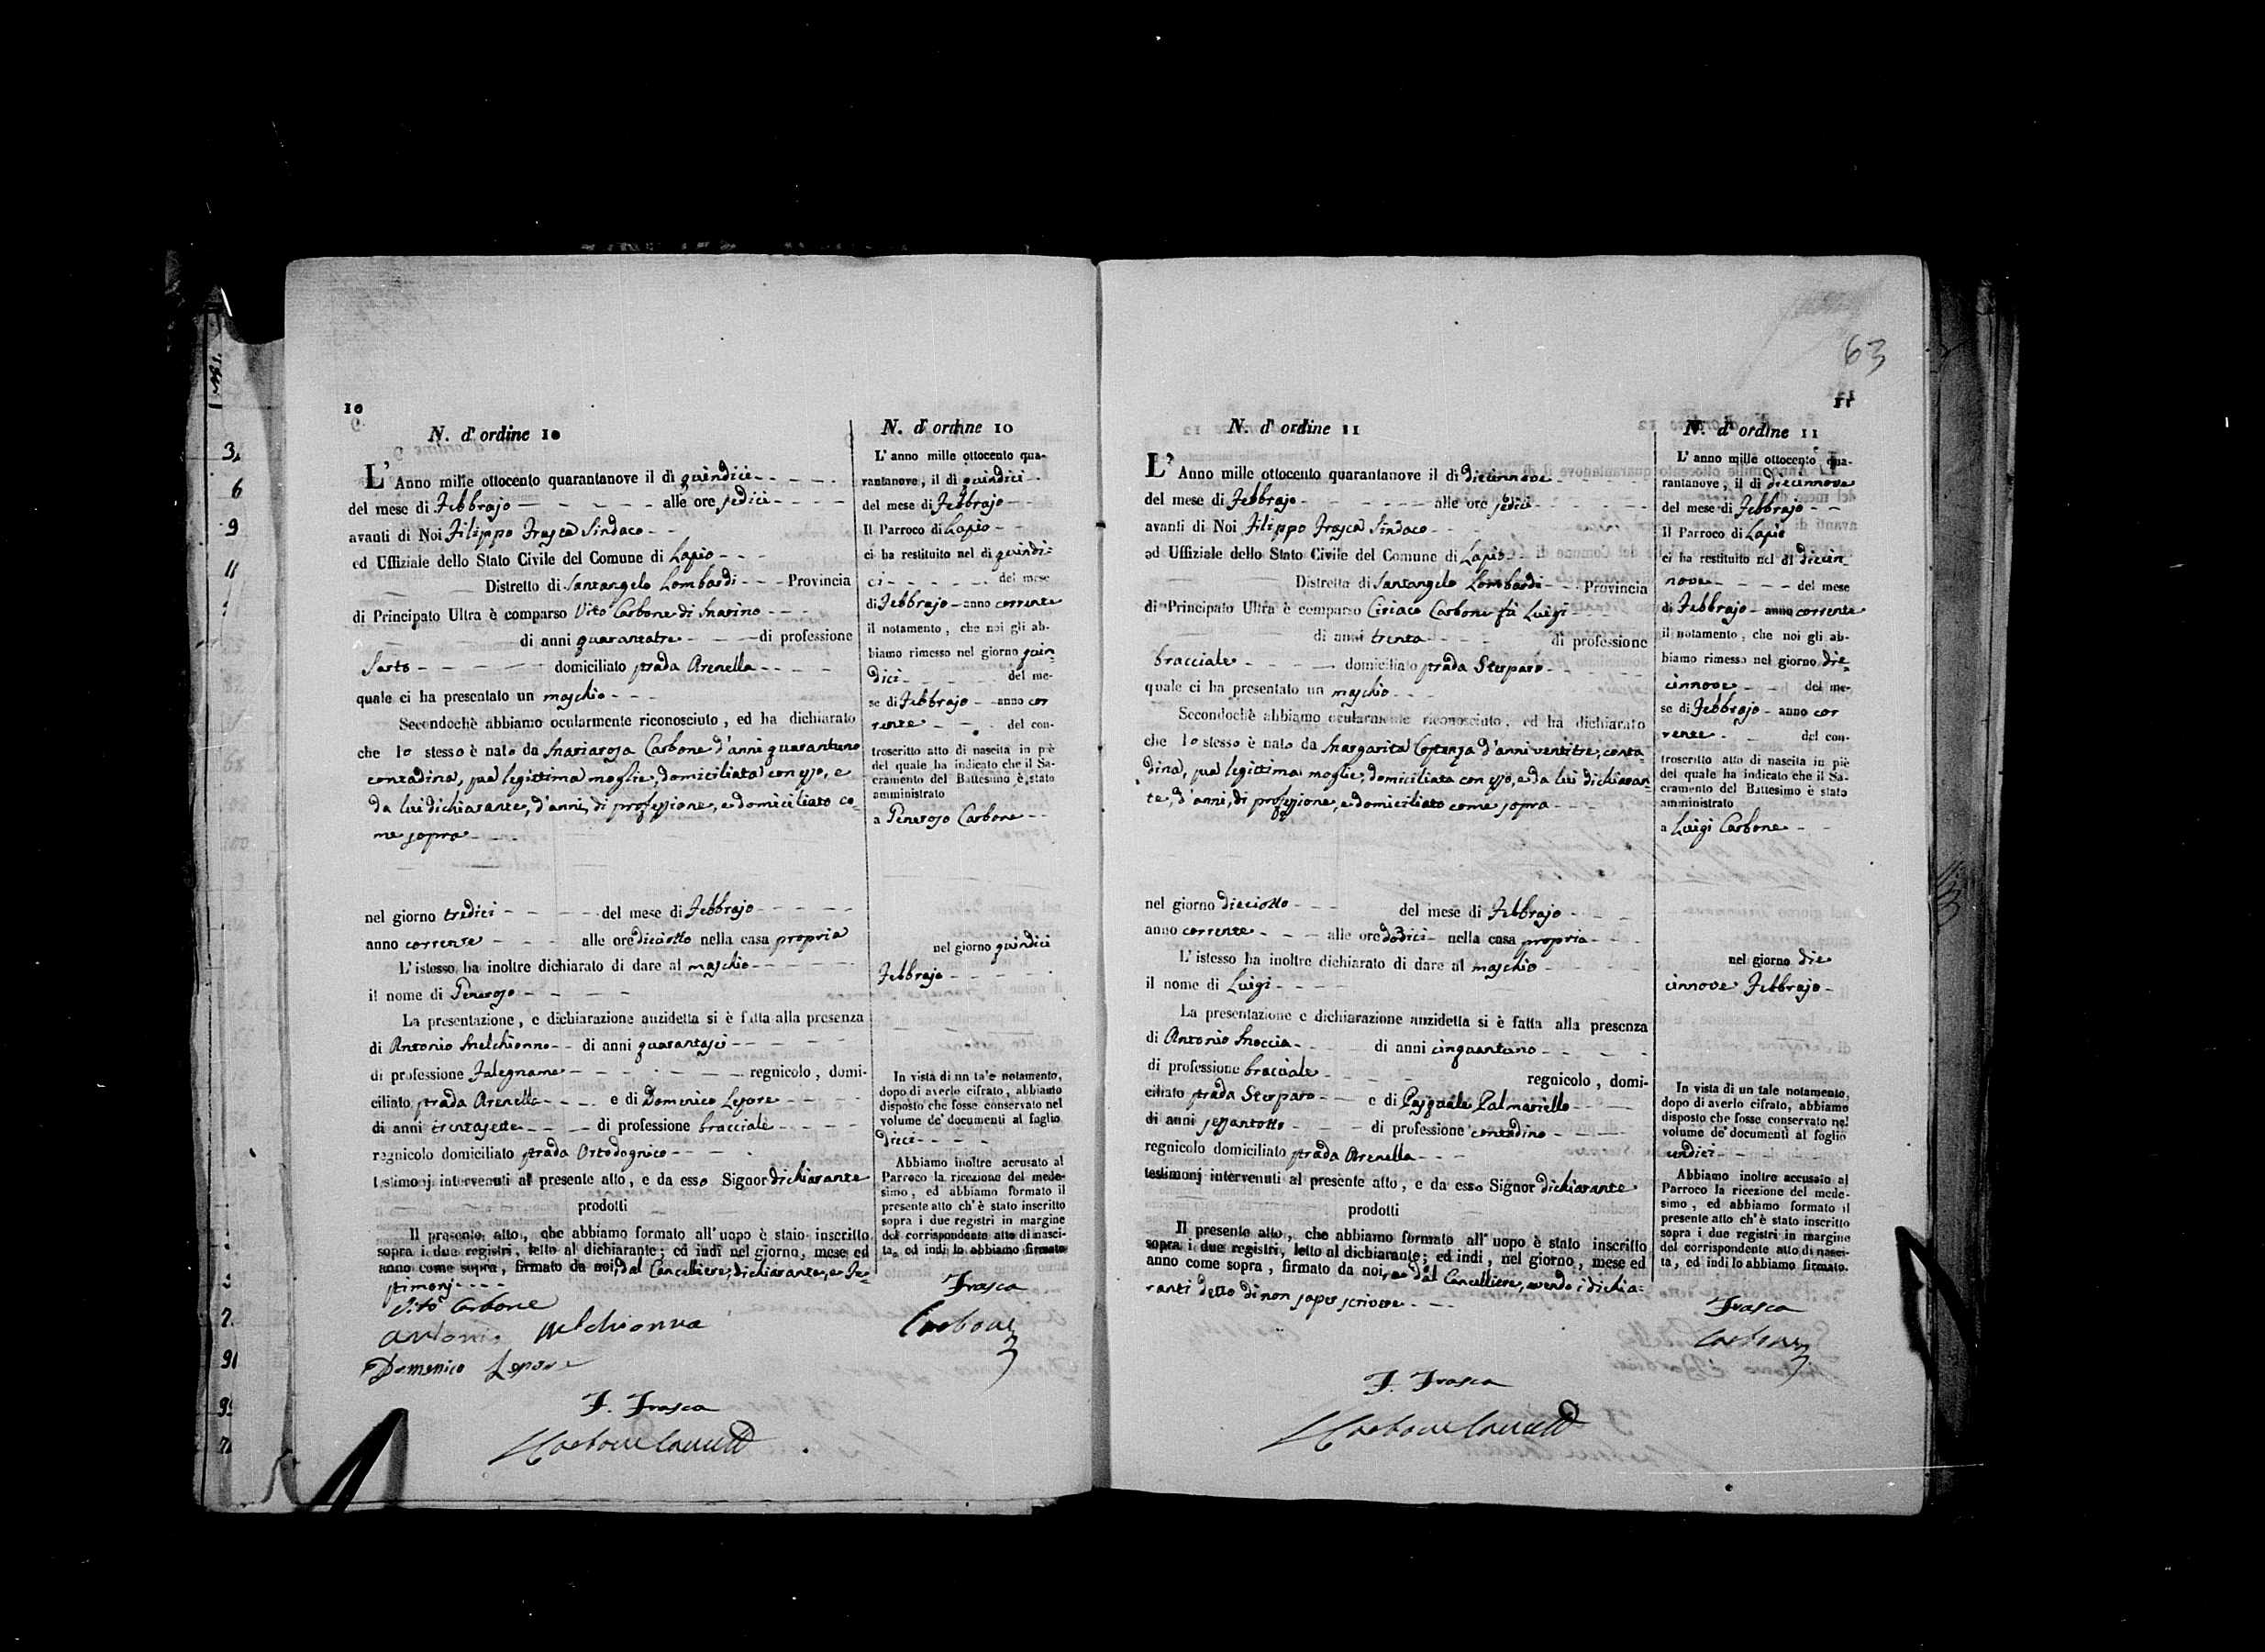 63
10
N. d' ordine 10
L' Anno mille ottocento quarantanove il dì quindici
del mese di Febbrajo alle ore sedici
avanti di Noi Filippo Frasca Sindaco
ed Uffiziale dello Stato Civile del Comune di Lapio
Distretto di Santangelo Lombardi Provincia
di Principato Ultra è comparso Vito Carbone di Marino
di anni quarantatre di professione
Sarto domiciliato strada Arenella
quale ci ha presentato un maschio
Secondochè abbiamo ocularmente riconosciuto, ed ha dichiarato
che lo stesso è nato da Mariarosa Carbone d'anni quarantuno
contadina, sua legittima moglie, domiciliata con esso, e
da lui dichiarante, d'anni, di professione, e domiciliato co=
me sopra
nel giorno tredici del mese di Febbrajo
anno corrente alle ore dieciotto nella casa propria
L' istesso ha inoltre dichiarato di dare al maschio
il nome di Generoso
La presentazione, e dichiarazione anzidetta si è fatta alla presenza
di Antonio Melchionno di anni quarantasei
di professione Falegname regnicolo, domi-
ciliato strada Arenella e di Domenico Lepore
di anni trentasette di professione bracciale
regnicolo domiciliato strada Ortodognico
testimonj intervenuti al presente atto, e da esso Signor dichiarante
prodotti
Il presente atto, che abbiamo formato all' uopo è stato inscritto
sopra i due registri, letto al dichiarante; ed indi nel giorno, mese ed
anno come sopra, firmato da noi, dal Cancelliere, dichiarante, e Te=
stimonj
Vito Carbone
Antonio Melchionna
Domenico Lepore
F. Frasca
Carbone
N. d' ordine 10
L' anno mille ottocento qua-
rantanove, il dì quindici
del mese di Febbrajo
Il Parroco di Lapio
ci ha restituito nel dì quindi=
ci del mese
di Febbrajo anno corrente
il notamento, che noi gli ab-
biamo rimesso nel giorno quin
dici del me-
se di Febbrajo anno cor
rente del con-
troscritto atto di nascita in piè
del quale ha indicato che il Sa-
cramento del Battesimo è stato
amministrato
a Generoso Carbone
nel giorno quindici
Febbrajo
In vista di un tale notamento,
dopo di averlo cifrato, abbiamo
disposto che fosse conservato nel
volume de' documenti al foglio
dieci
Abbiamo inoltre accusato al
Parroco la ricezione del mede-
simo, ed abbiamo formato il
presente atto ch' è stato inscritto
sopra i due registri in margine
del corrispondente atto di nasci-
ta, ed indi lo abbiamo firmato
Frasca
Carbone
11
N. d' ordine 11
L' Anno mille ottocento quarantanove il dì diecinnove
del mese di Febbrajo alle ore sedici
avanti di Noi Filippo Frasca Sindaco
ed Uffiziale dello Stato Civile del Comune di Lapio
Distretto di Santangelo Lombardi Provincia
di Principato Ultra è comparso Ciriaco Carbone fù Luigi
di anni trenta di professione
bracciale domiciliato strada Sterparo
quale ci ha presentato un maschio
Secondochè abbiamo ocularmente riconosciuto, ed ha dichiarato
che lo stesso è nato da Margarita Costanza d'anni ventitre, conta=
dina, sua legittima moglie, domiciliata con esso, e da lui dichiaran=
te, d'anni, di professione, e domiciliato come sopra
nel giorno dieciotto del mese di Febbrajo
anno corrente alle ore dodici nella casa propria
L' istesso ha inoltre dichiarato di dare al maschio
il nome di Luigi
La presentazione e dichiarazione anzidetta si è fatta alla presenza
di Antonio Moccia di anni cinquantuno
di professione bracciale regnicolo, domi-
ciliato strada Sterparo e di Pasquale Palmariello
di anni sessantotto di professione contadino
regnicolo domiciliato strada Arenella
testimonj intervenuti al presente atto, e da esso Signor dichiarante
prodotti
Il presente atto, che abbiamo formato all' uopo è stato inscritto
sopra i due registri, letto al dichiarante; ed indi, nel giorno, mese ed
anno come sopra, firmato da noi, e dal Cancelliere, avendo i dichia=
ranti detto di non saper scrivere
F. Frasca
Carbone
N. d' ordine 11
L' anno mille ottocento qua-
rantanove, il dì diecinnove
del mese di Febbrajo
Il Parroco di Lapio
ci ha restituito nel dì diecin=
nove del mese
di Febbrajo anno corrente
il notamento, che noi gli ab-
biamo rimesso nel giorno die=
cinnove del me-
se di Febbrajo anno cor
rente del con-
troscritto atto di nascita in piè
del quale ha indicato che il Sa-
cramento del Battesimo è stato
amministrato
a Luigi Carbone
nel giorno die
cinnove Febbrajo
In vista di un tale notamento,
dopo di averlo cifrato, abbiamo
disposto che fosse conservato nel
volume de' documenti al foglio
undici
Abbiamo inoltre accusato al
Parroco la ricezione del mede-
simo, ed abbiamo formato il
presente atto ch' è stato inscritto
sopra i due registri in margine
del corrispondente atto di nasci-
ta, ed indi lo abbiamo firmato.
Frasca
Carbone